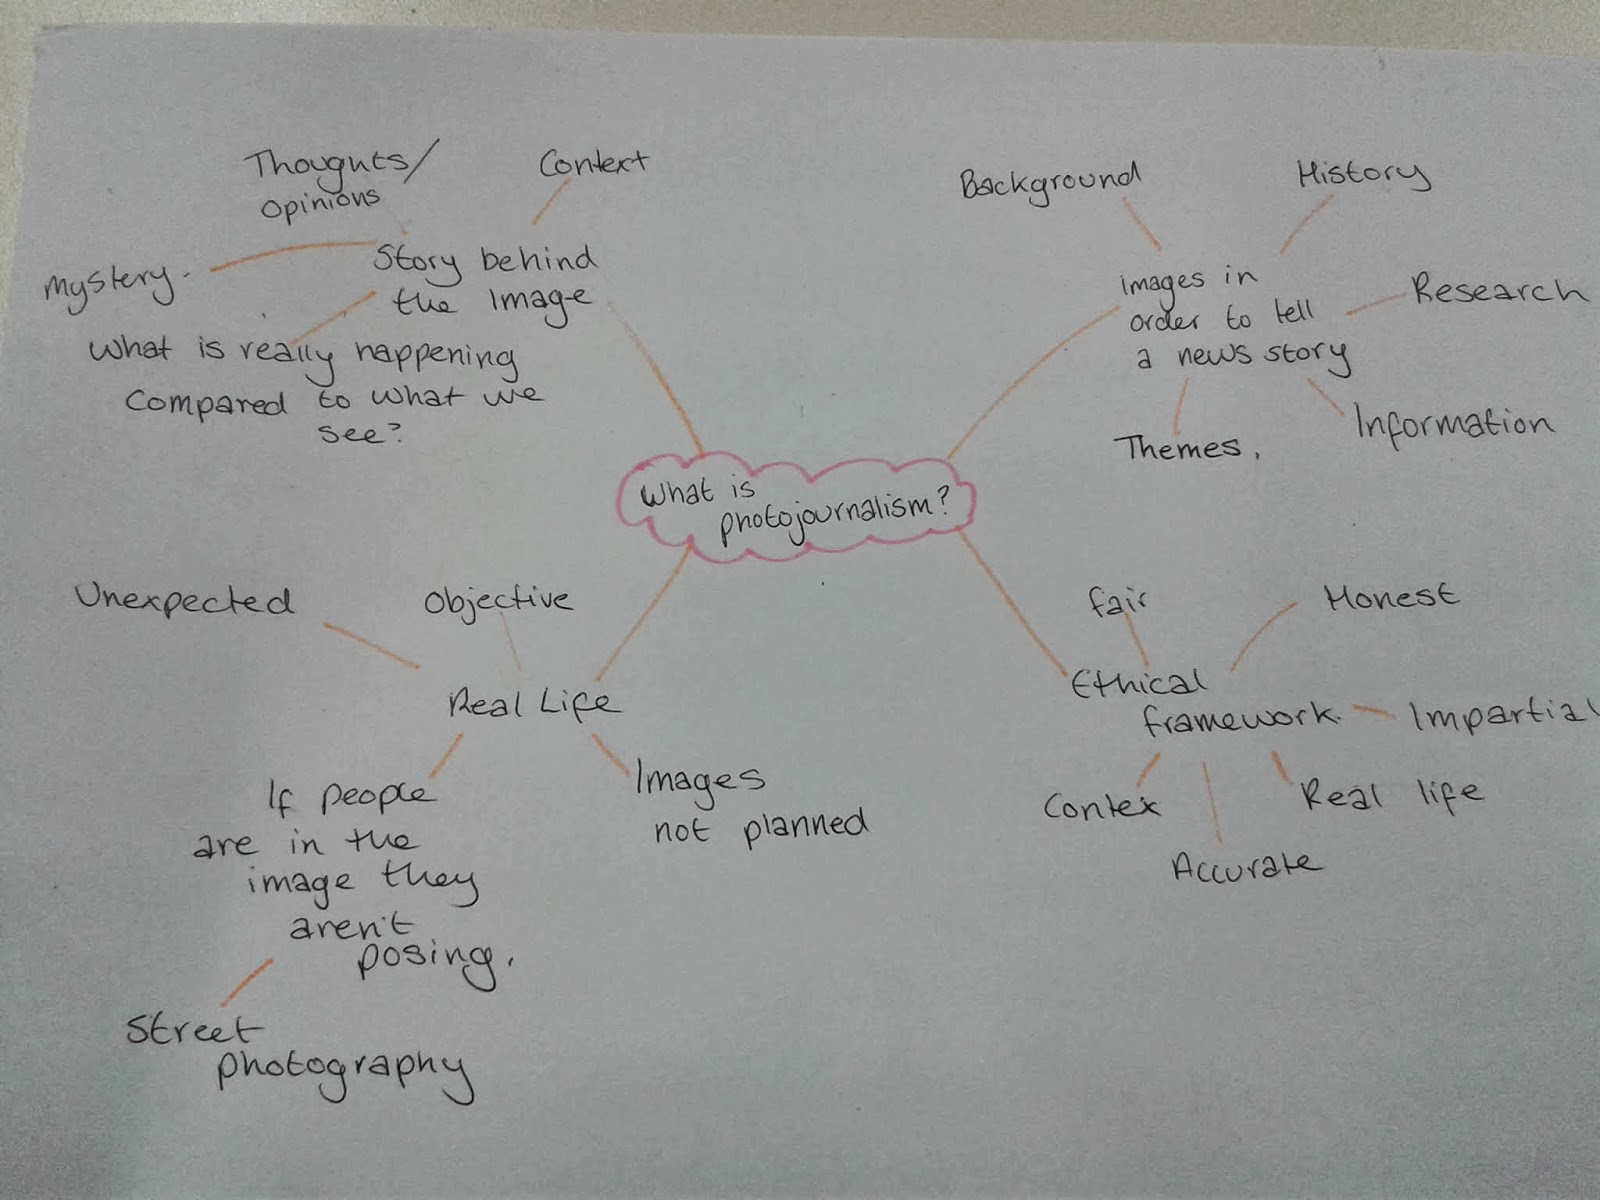 Thoughts/
opinions
Context
Mystery.
Story behind
the image
What is really happening
Compared to what we
see?
Background
History
images in
order to tell
a news story
Research
Themes.
Information
What is
photojournalism?
Unexpected
Objective
Real Life
If people
are in the
image they
aren't
posing.
Images
not planned
Street
photography
fair
Honest
Ethical
framework.
Impartial
Contex
Real life
Accurate